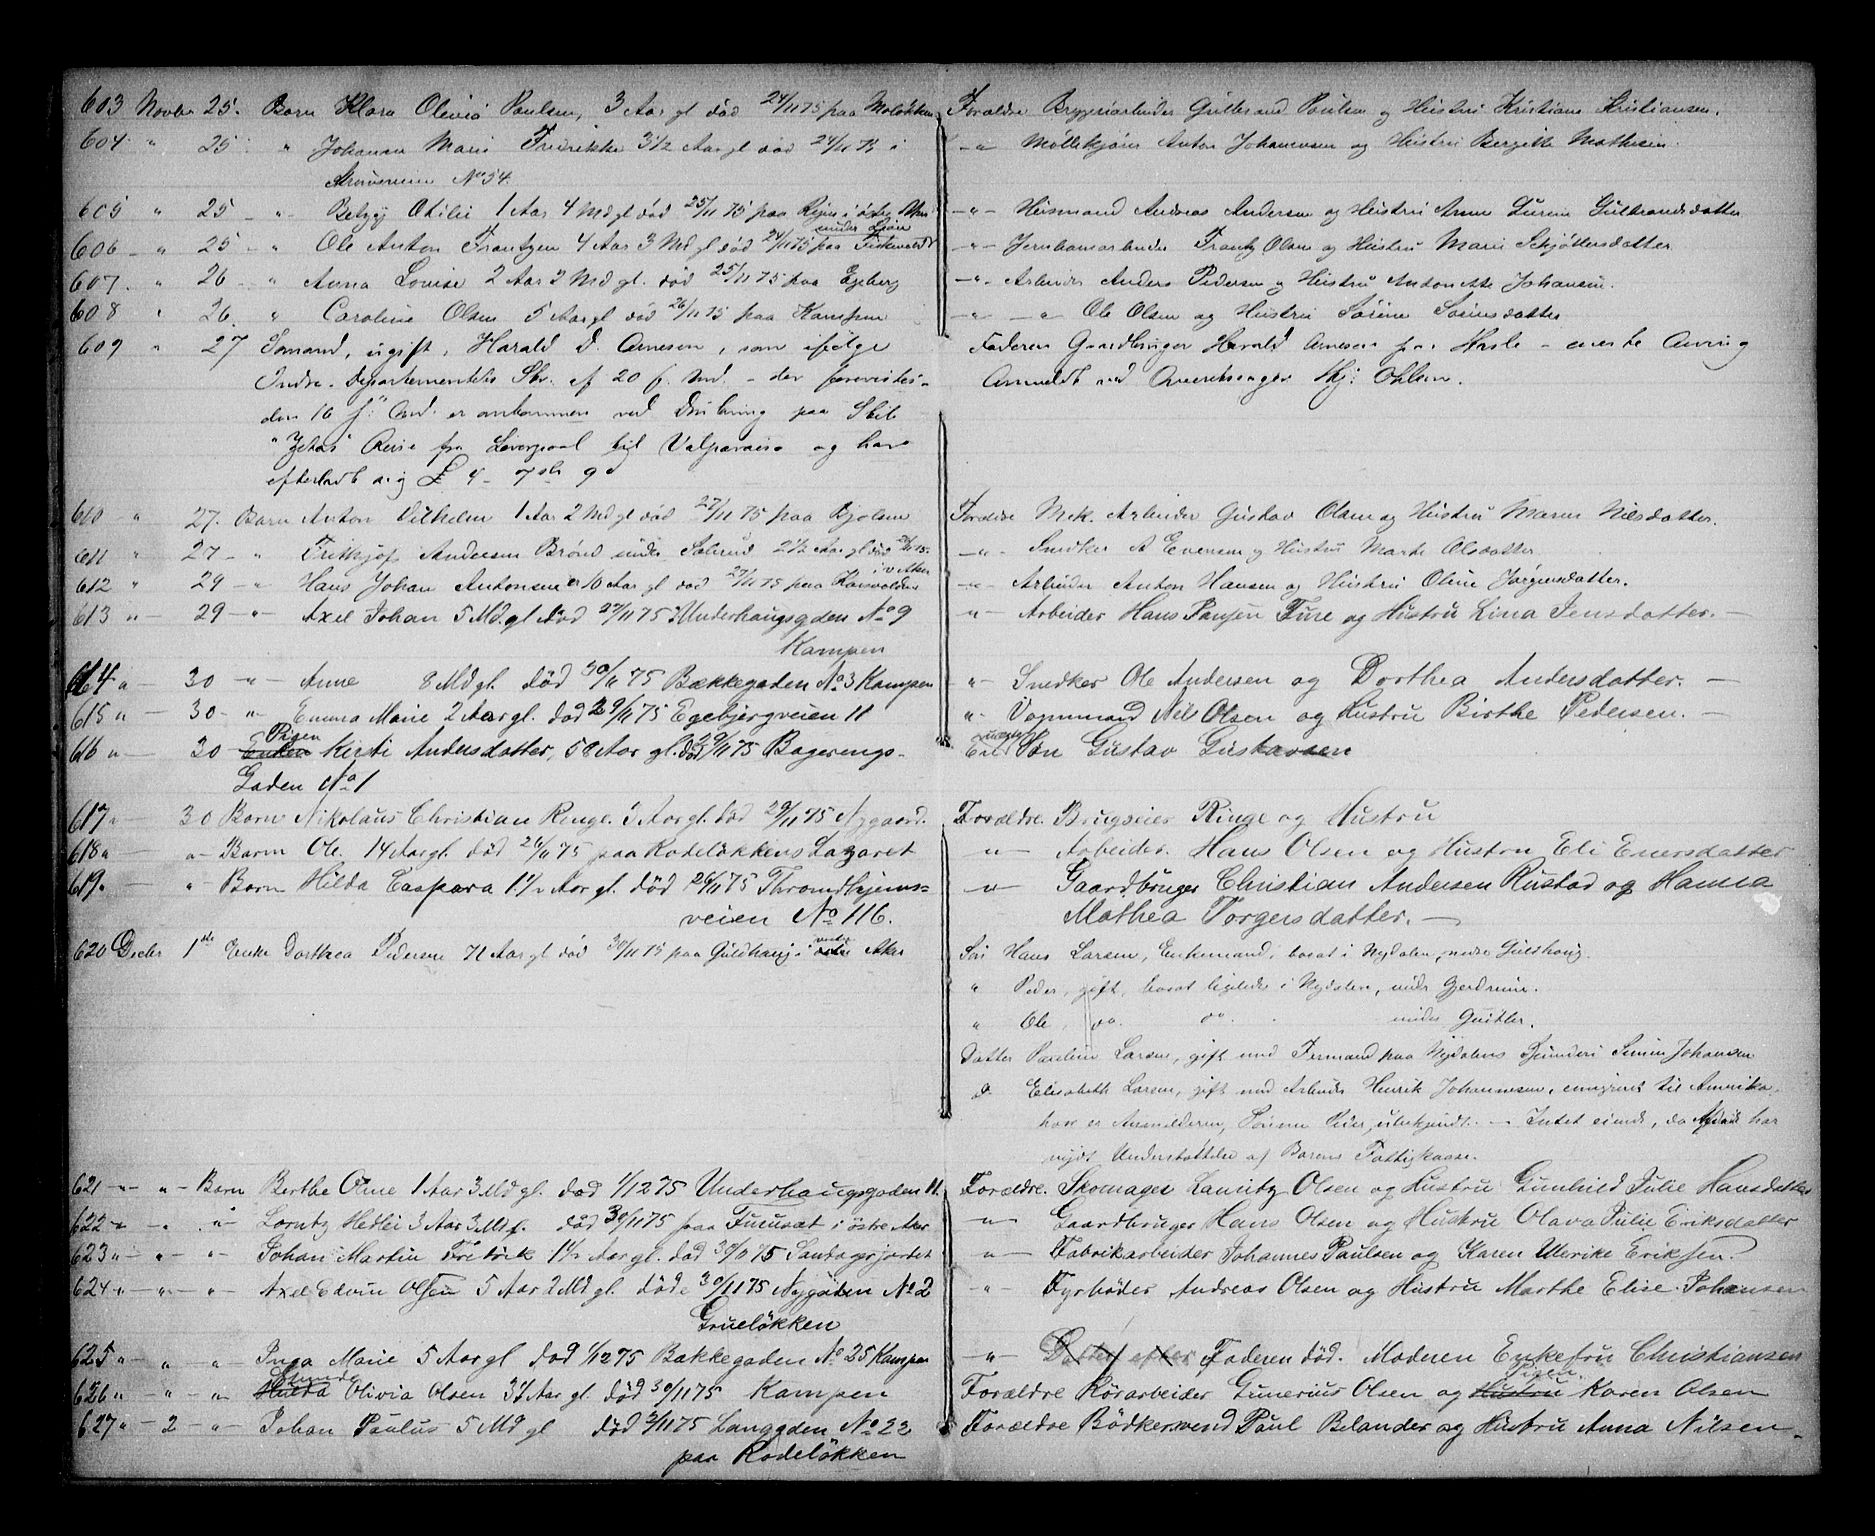 603 Novbr 25. Barn Klara Olivia Paulsen, 3 Aar gl død 24/11 75 paa Foræ­ldre Bryggeriarbeider Gulbrand Paulsen og Hustru Kristiane Kristiansen.
604 " 25 " Johanna Marie Fredrikke 3 1/2 Aar gl død 24/11 75 i -"- Møllekjører Anton Johannesen og Hustru Bergitte Mathisen.
No 54.
605 " 25 -"- Otilie 1 Aar 4 Md gl død 25/11 75 paa i østre Aker -"- Huusmand Andreas Andersen og Hustru Anne Gulbrandsdatter
606 " 25 -"- Ole Anton Frantzen 4 Aar 3 Md gl død 24/11 75 paa -"- Jernbanearbeider Frantz Olsen og Hustru Marie
607 " 26 " Anna Lovise 2 Aar 2 Md gl. død 25/11 75 paa Egeberg -"- Arbeider Anders Pedersen og Hustru Antonette Johansen.
608 " 26 " Caroline Olsen 5 Aar gl død 26/11 75 paa Kampen -"- -"- Ole Olsen og Hustru Sørine Sørensdatter
609 " 27 Sømand, ugift, Harald D. Arnesen, som ifølge Faderen Gaardbruger Harald Arnesen paa Hasle
Indre-Departementets Skr. af 20 f. Md. - der forevistes - Anmeldt ved Ohlsen.
den 16 Md. er omkommen ved Drukning paa Skib
Reise fra Liverpool til Valparaiso og har
efterladt sig £ 4 - 7 sh 9 d
610 " 27. Barn Anton Vilhelm 1 Aar 2 Md gl død 27/11 75 paa Bjølsen Forældre Mek. Arbeider Gustav Olsen og Hustru Maren Nilsdatter.
611 " 27 - " Frithjof Andersen under 2 1/2 Aar gl død -"- Snedker A Evensen og Hustru Marte Olsdatter
i v Aker
612 " 29 - " Hans Johan Antonsen 10 Aar gl død 27/11 75 paa -"- Arbeider Anton Hansen og Hustru Oline Jørgensdatter.
613 " - 29 - " - Axel Johan 5 Md. gl død 27/11 75 Underhaugsgaden No 9 " - Arbeider Hans Hansen Fure og Hustru Lina Jensdatter. -
Kampen
614 " - 30 - " - Anne 8 Md gl. død 30/11 75 Bækkegaden No 3 Kampen - " - Snedker Ole Andersen og Dorthea Andersdatter. -
615 " - 30 - " - Emma Marie 2 Aar gl. død 29/11 75 Egebjergveien 11 " - Vognmand Nils Olsen og Hustru Birthe Pedersen. -
Pigen
616 " - 30 Enken Kirsti Andersdatter, 58 Aar gl. død 29/11 75 Bagerengs- Søn Gustav Gustavsen
Gaden No 1
617 " - 30 Barn Nikolaus Christian Ringe. 1 Aar gl. død 29/11 75 Nygaard. Forældre. Brugseier Ringe og Hustru
618 " - "- Barn Ole. 14 Aar gl. død 26/11 75 paa Rodeløkkens Lazaret - " - Arbeider. Hans Olsen og Hustru Eli Enersdatter
619. - " - Barn Hilda Caspara 1 1/2 Aar gl. død 26/11 75 Throndhjems- - " - Gaardbruger Christian Andersen Rustad og Hanna
veien No 116. Mathea Torgersdatter. -
620 Decbr 1ste Enke Dorthea Pedersen 71 Aar gl død 30/11 75 paa Guldhaug i vestre Aker Søn Hans Larsen, Enkemand, boset i Nydalen, under Guldhaug.
" Peder, gift, bosat ligeledes i Nydalen, under Gjerdrum.
" Ole, do. do. under
Datter Pauline Larsen, gift med Formand paa Nydalens Spinderi Simen Johansen
d. Elisabeth Larsen, gift med Arbeider Henrik Johannesen, emigreret til Amerika,
hvor er Anmelderen, Sønnen Peder, ubekjendt. - Intet eiende, da Afdøde har
nydt Understøttelse af Byens Fattigkasse.
621 - " - " - Barn Berthe Oline 1 Aar 3 Md gl. død 1/12 75 Underhaugsgaden 11. Forældre. Skomager Lauritz Olsen og Hustru Gunhild Julie Hansdatter
622 " - " - " Lorntz Hetlei 3 Aar 3 Md. død 30/11 75 paa Furuset i østre Aker - " - Gaardbruger Hans Olsen og Hustru Olava Julie Eriksdatter
623 " - " - " - Johan Martin Fredrik 1 1/2 Aar gl. død 30/11 75 " - Fabrikarbeider Johannes Paulsen og Karen Ulerike Eriksen.
624 " - " - " - Axel Edvin Olsen 5 Aar 2 Md gl. døde 30/11 75 Nygaden No 2 - " - Fyrbøder Andreas Olsen og Hustru Marthe Elise Johansen
Grueløkken
625 " - " - " - Inga Marie 5 Aar gl død 1/12 75 Bakkegaden No 25 Kampen - " - Datter efter Faderen død. Moderen Enkefru Christiansen
626 " - " - " - Hulda Olivia Olsen 3 1/2 Aar gl. død 30/11 75 Kampen Forældre Rørarbeider Gunerius Olsen og Hustru Pigen Karen Olsen
627 " - 2 - " - Johan Paulus 5 Md gl død 2/11 75 Langgden No 22 Forældre Bødkersvend Paul Belander og Hustru Anna Nilsen -
paa Rodeløkken